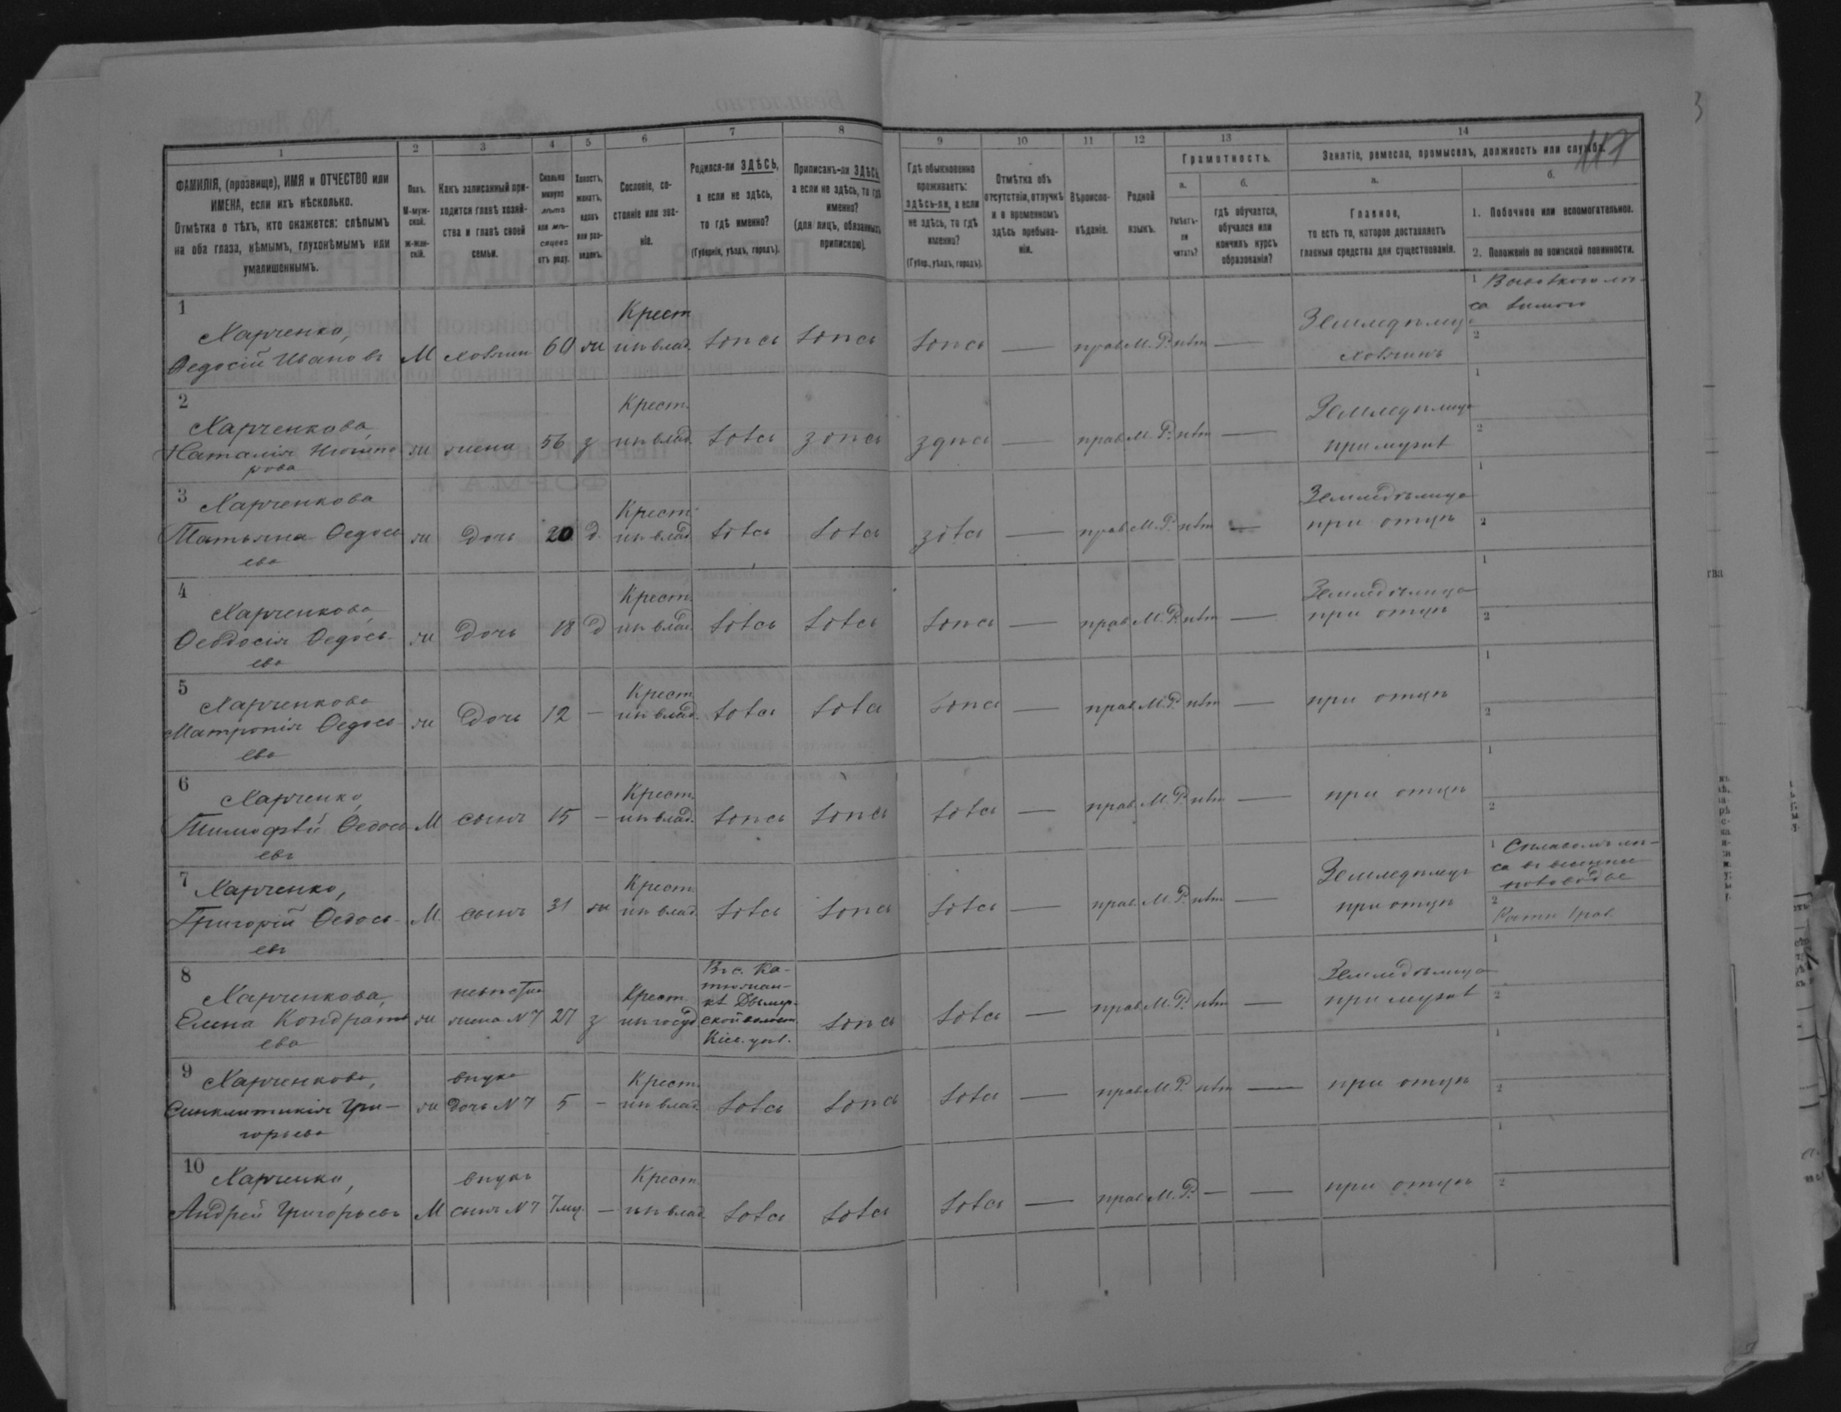 1 2 3 4 5 6 7 8 9 10 11 12 13 14
ФАМИЛІЯ, (прозвище), ИМЯ и ОТЧЕСТВО или
ИМЕНА, если ихъ нѣсколько.
Отмѣтка о тѣхъ, кто окажется: слѣпымъ
на оба глаза, нѣмымъ, глухонѣмымъ или
умалишеннымъ.
Полъ.
М-муж-
ской.
ж-жен-
скій.
Какъ записанный при-
ходится главѣ хозяй-
ства и главѣ своей
семьи.
Сколько
минуло
лѣтъ
или мѣ-
сяцевъ
отъ роду.
Холостъ,
женатъ,
вдовъ
или раз-
веденъ.
Сословіе, со-
стояніе или зва-
ніе.
Родился-ли ЗДѢСЬ,
а если не здѣсь,
то гдѣ именно?
(Губернія, уѣздъ, городъ).
Приписанъ-ли ЗДѢСЬ,
а если не здѣсь, то гдѣ
именно?
(для лицъ, обязанныхъ
припискою).
Гдѣ обыкновенно
проживаетъ:
здѣсь-ли, а если
не здѣсь, то гдѣ
именно?
(Губер., уѣздъ, городъ).
Отмѣтка объ
отсутствіи, отлучкѣ
и о временномъ
здѣсь пребыва-
ніи.
Вѣроиспо-
вѣданіе.
Родной
языкъ.
Грамотность.
а.
Умѣетъ-
ли
читать?
б.
гдѣ обучается,
обучался или
кончилъ курсъ
образованія?
Занятіе, ремесло, промыселъ, должность или служба.
а.
Главное,
то есть то, которое доставляетъ
главныя средства для существованія.
б.
1. Побочное или вспомогательное.
2. Положеніе по воинской повинности.
1 Харченко,
Ѳедосій Ивановъ М хозяинъ 60 ж Крест. изъ влад. здѣсь здѣсь здѣсь — прав. М. Р. нѣт —
Земледѣлецъ
хозяинъ
2 Харченкова,
Наталія ж жена 56 з Крест. изъ влад. здѣсь здѣсь здѣсь — прав. М. Р. нѣт —
Земледѣлица
при мужѣ
3 Харченкова
Татьяна Ѳедось-
ева ж дочь 20 д. Крест. изъ влад. здѣсь здѣсь здѣсь — прав. М. Р. нѣт —
Земледѣлица
при отцѣ
4 Харченкова,
Ѳевдосія Ѳедось-
ева ж дочь 18 д Крест. изъ влад. здѣсь здѣсь здѣсь — прав. М. Р. нѣт —
Земледѣлица
при отцѣ
5 Харченкова
Матронія Ѳедось-
ева ж дочь 12 — Крест. изъ влад. здѣсь здѣсь здѣсь — прав. М. Р. нѣт —
при отцѣ
6 Харченко,
Тимофѣй Ѳедось-
евъ М сынъ 15 — Крест. изъ влад. здѣсь здѣсь здѣсь — прав. М. Р. нѣт —
при отцѣ
7 Харченко,
Григорій Ѳедось-
евъ М сынъ 31 ж Крест. изъ влад. здѣсь здѣсь здѣсь — прав. М. Р. нѣт —
Земледѣлецъ
при отцѣ
8 Харченкова,
Елена Кондрать-
ева ж невѣстка
жена №7 27 з Крест. изъ госуд.
Кіев. уѣз. здѣсь здѣсь — прав. М. Р. нѣт —
Земледѣлица
при мужѣ
9 Харченкова,
Синклитикія Гри-
горьева ж внука
дочь №7 5 — Крест. изъ влад. здѣсь здѣсь здѣсь — прав. М. Р. нѣт —
при отцѣ
10 Харченко,
Андрей Григорьевъ М внукъ
сынъ №7 7 мц. — Крест. изъ влад. здѣсь здѣсь здѣсь — прав. М. Р. — —
при отцѣ